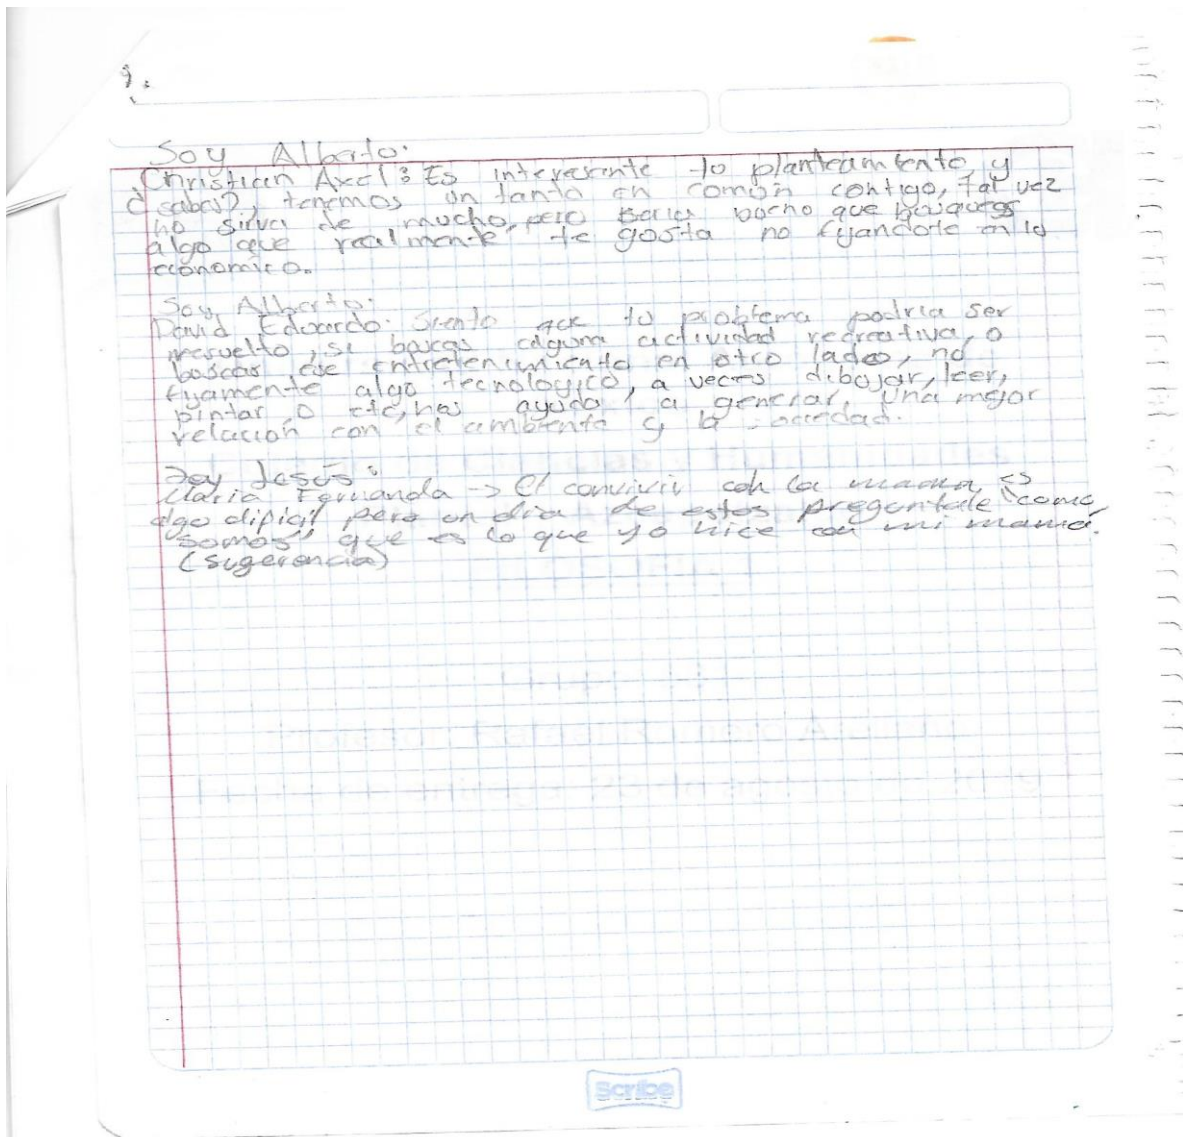 9.
Soy Alberto:
Christian Axel: Es interesante tu planteamiento, y
¿sabes?, tenemos un tanto en común contigo, tal vez
no sirva de mucho, pero seria bueno que busques
algo que realmente te gusta no fijandote en lo
economico.
Soy Alberto:
David Eduardo: Siento que tu problema podria ser
resuelto, si buscas alguna actividad recreativa, o
buscar ese entretenimiento en otro lado, no
fijamente algo tecnologico, a veces dibujar, leer,
pintar, o etc, nos ayuda, a generar, una mejor
relación con el ambiente y la sociedad.
Soy Jesús:
Maria Fernanda -> El convivir con la mamá, es
algo dificil pero un dia de estos preguntale "como
somos" que es lo que yo hice con mi mamá.
(sugerencia)
Scribe